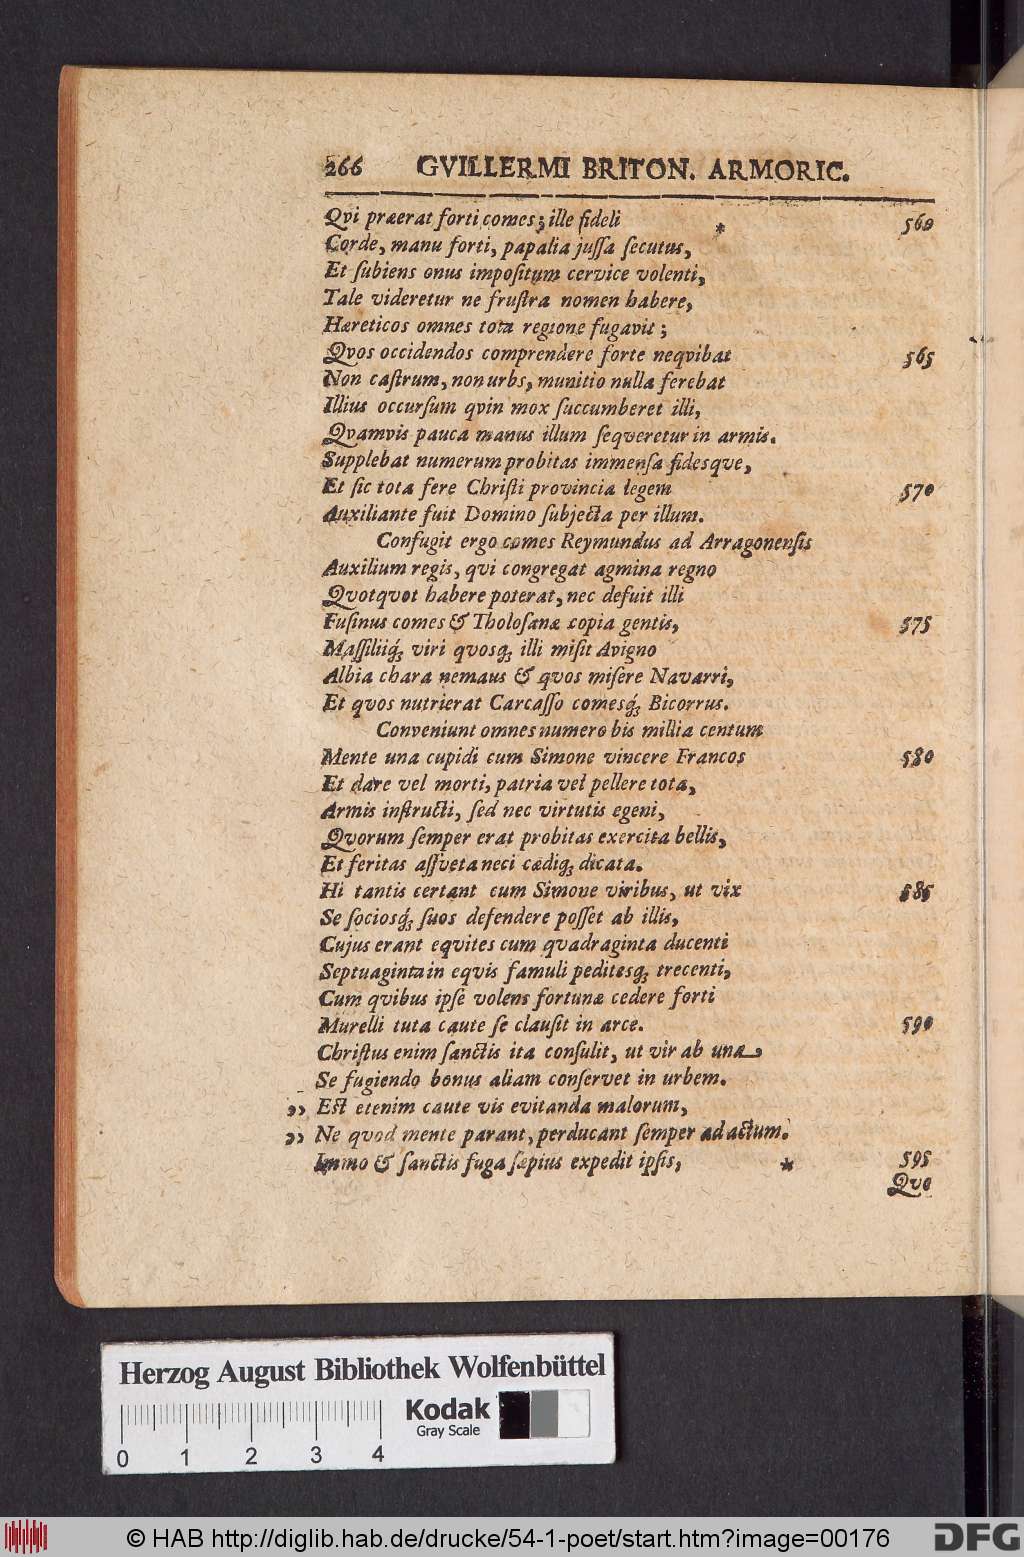 266 GVILLERMI BRITON. ARMORIC.
Qvi præerat forti comes; ille fideli * 560
Corde, manu forti, papalia juſſa ſecutus,
Et ſubiens onus impoſitum cervice volenti,
Tale videretur ne fruſtra nomen habere,
Hæreticos omnes tota regione fugavit;
Qvos occidendos comprendere forte neqvibat 565
Non caſtrum, non urbs, munitio nulla ferebat
Illius occurſum qvin mox ſuccumberet illi,
Qvamvis pauca manus illum ſeqveretur in armis.
Supplebat numerum probitas immenſa fidesqve,
Et ſic tota fere Chriſti provincia legem 570
Auxiliante fuit Domino ſubjecta per illum.
Confugit ergo comes Reymundus ad Arragonenſis
Auxilium regis, qvi congregat agmina regno
Qvotqvot habere poterat, nec defuit illi
Fuſinus comes & Tholoſanæ copia gentis, 575
Maſſiliiq́ꝫ viri qvosq́ꝫ illi miſit Avigno
Albia chara nemaus & qvos miſere Navarri,
Et qvos nutrierat Carcaſſo comesq́ꝫ Bicorrus.
Conveniunt omnes numero bis millia centum
Mente una cupidi cum Simone vincere Francos 580
Et dare vel morti, patria vel pellere tota,
Armis inſtructi, ſed nec virtutis egeni,
Qvorum ſemper erat probitas exercita bellis,
Et feritas aſſveta neci cædiqꝫ dicata.
Hi tantis certant cum Simone viribus, ut vix 585
Se ſociosq́ꝫ ſuos defendere poſſet ab illis,
Cujus erant eqvites cum qvadraginta ducenti
Septuaginta in eqvis famuli peditesqꝫ trecenti,
Cum qvibus ipſe volens fortunæ cedere forti
Murelli tuta caute ſe clauſit in arce. 590
Chriſtus enim ſanctis ita conſulit, ut vir ab una
Se fugiendo bonus aliam conſervet in urbem.
„ Eſt etenim caute vis evitanda malorum,
„ Ne qvod mente parant, perducant ſemper ad actum.
Immo & ſanctis fuga ſæpius expedit ipſis, * 595
Qvo
Herzog August Bibliothek Wolfenbüttel
Kodak
Gray Scale
0 1 2 3 4
© HAB http://diglib.hab.de/drucke/54-1-poet/start.htm?image=00176
DFG